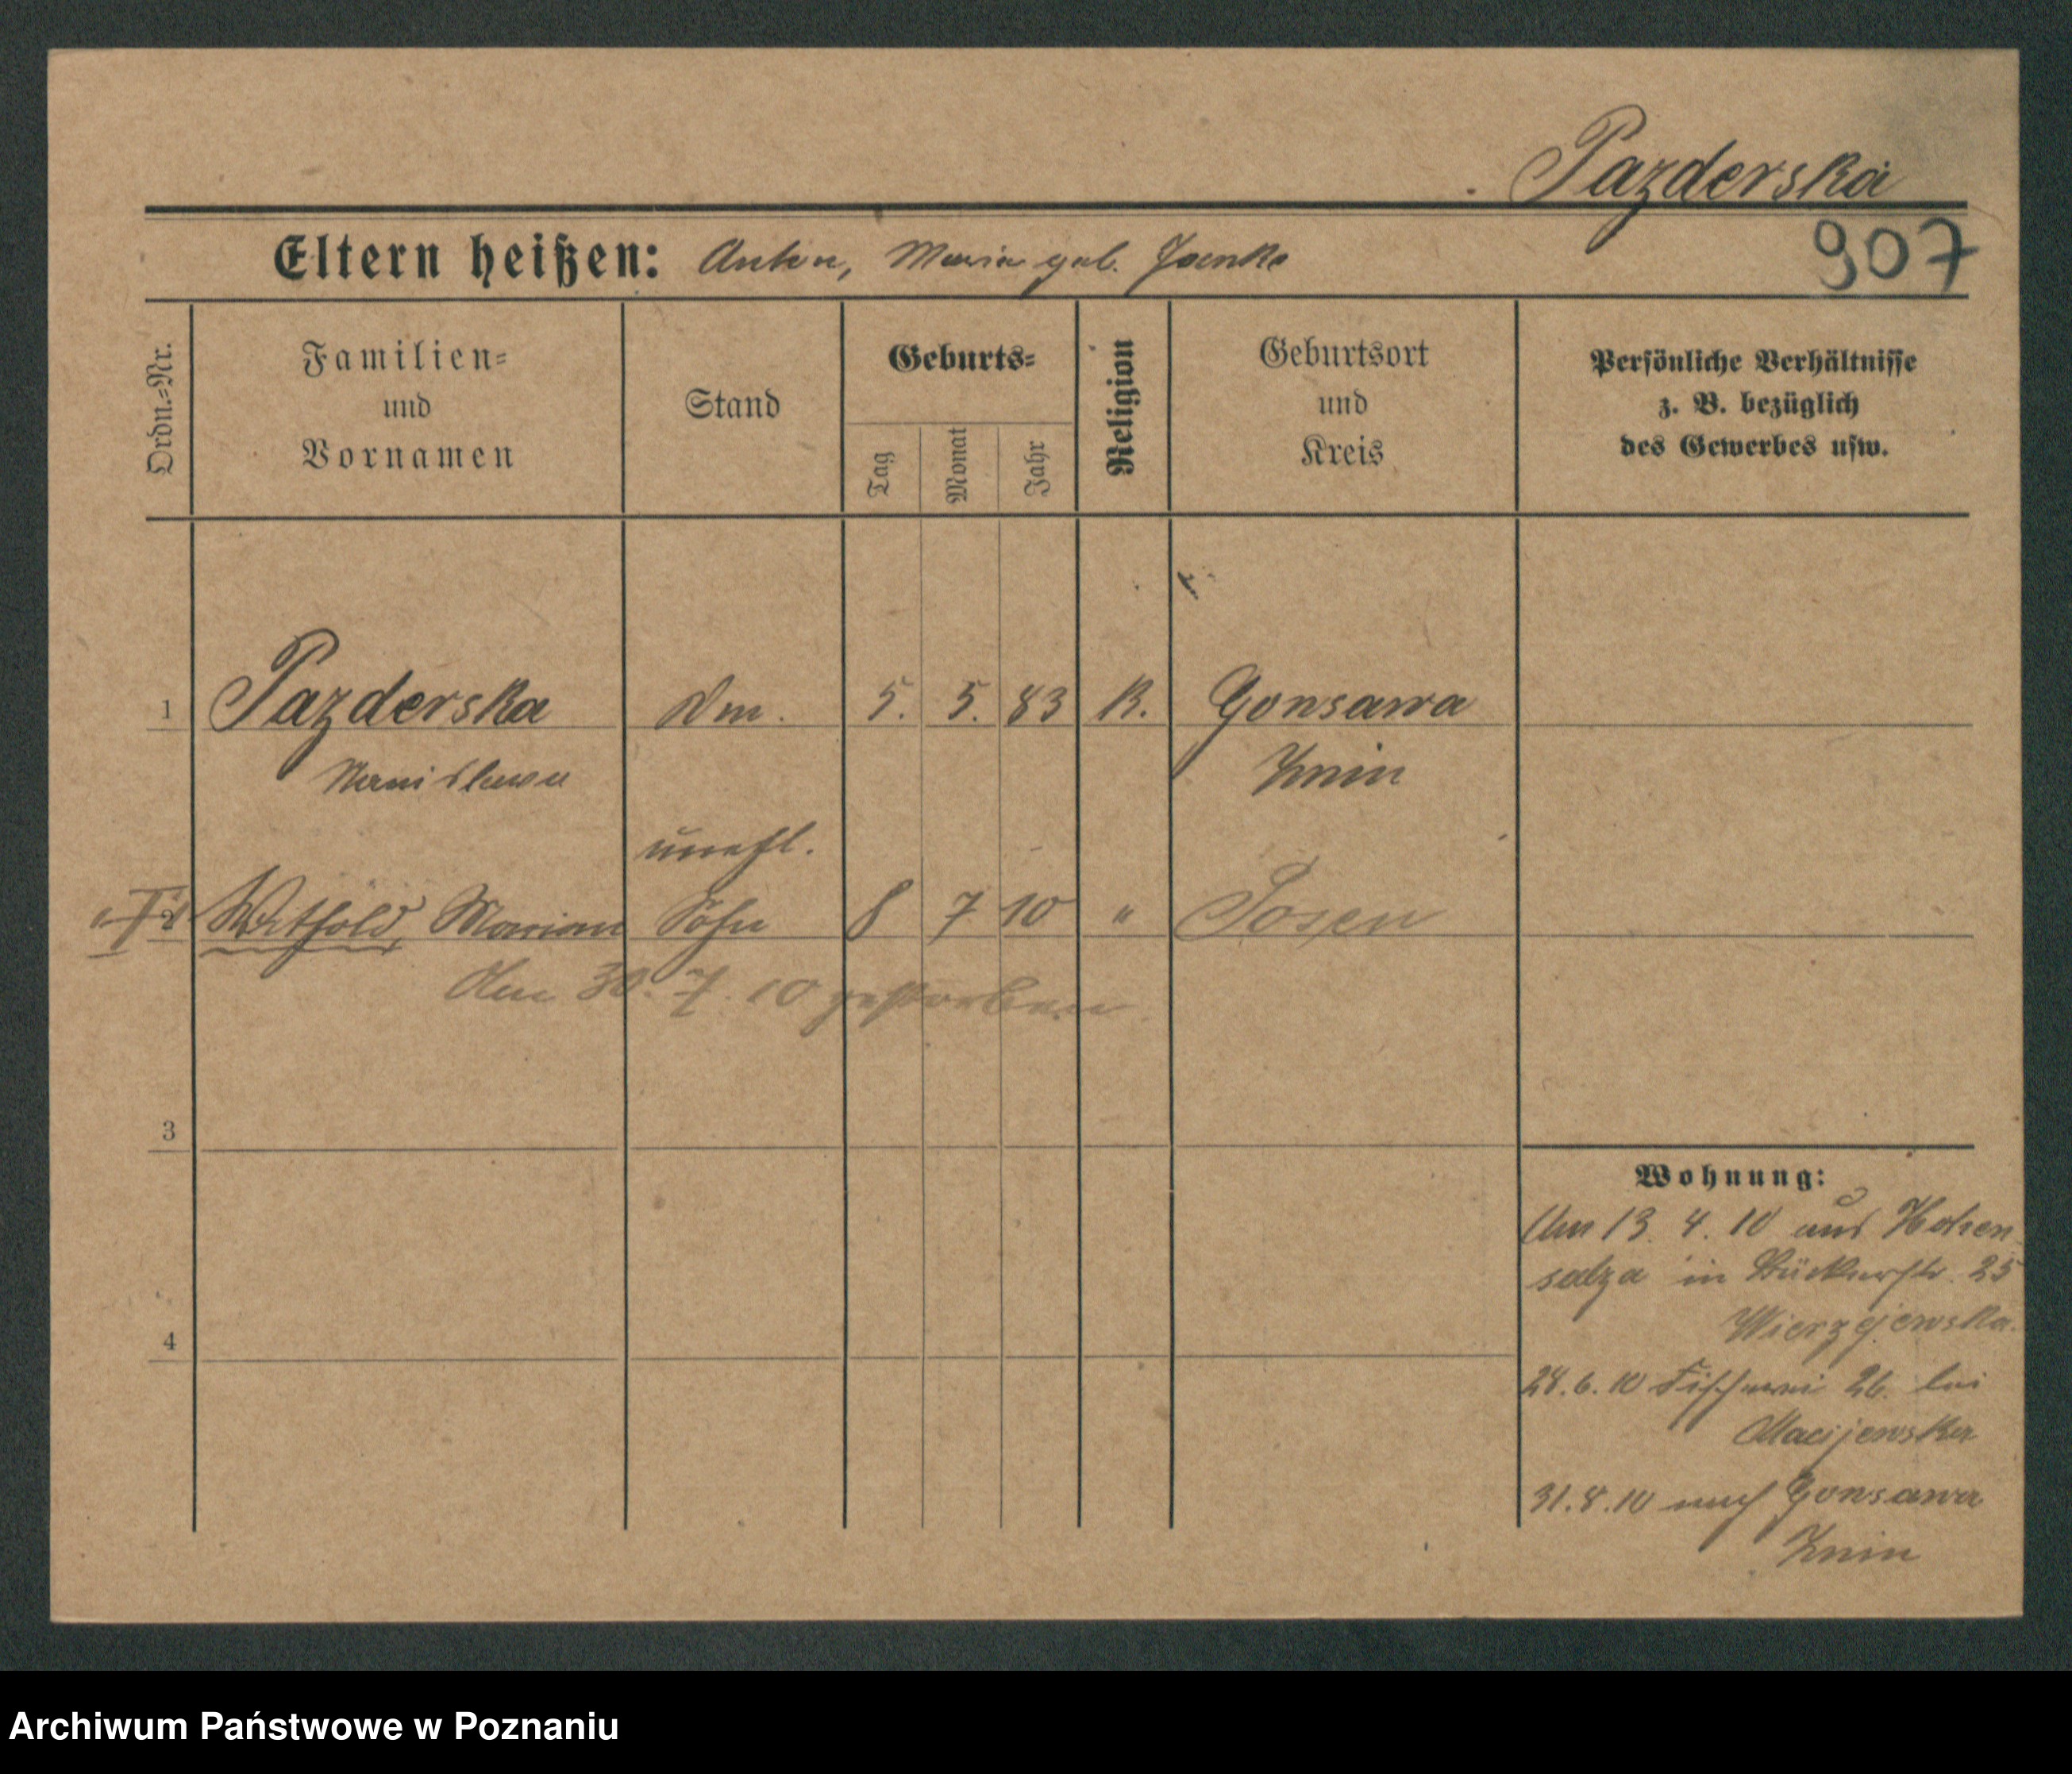 Pazderska
907
Eltern heißen: Anton, Maria geb. Janke
Ordn.=Nr.
Familien=
und
Vornamen
Stand
Geburts=
Tag
Monat
Jahr
Religion
Geburtsort
und
Kreis
Persönliche Verhältnisse
z. B. bezüglich
des Gewerbes usw.
1 Pazderska 5. 5. 83 K. Gonsawa
Stanislawa Znin
unehl.
2 Withold, Marian Sohn 8 7 10 " Posen
Am 30. 7. 10 gestorben.
3
4
Wohnung:
Am 13. 4. 10 aus Hohen
salza in Bückerstr. 25
Wierzejewska.
28.6.10 Fischerei 26. bei
Macijewska
31.8.10 nach Gonsawa
Znin
Archiwum Państwowe w Poznaniu